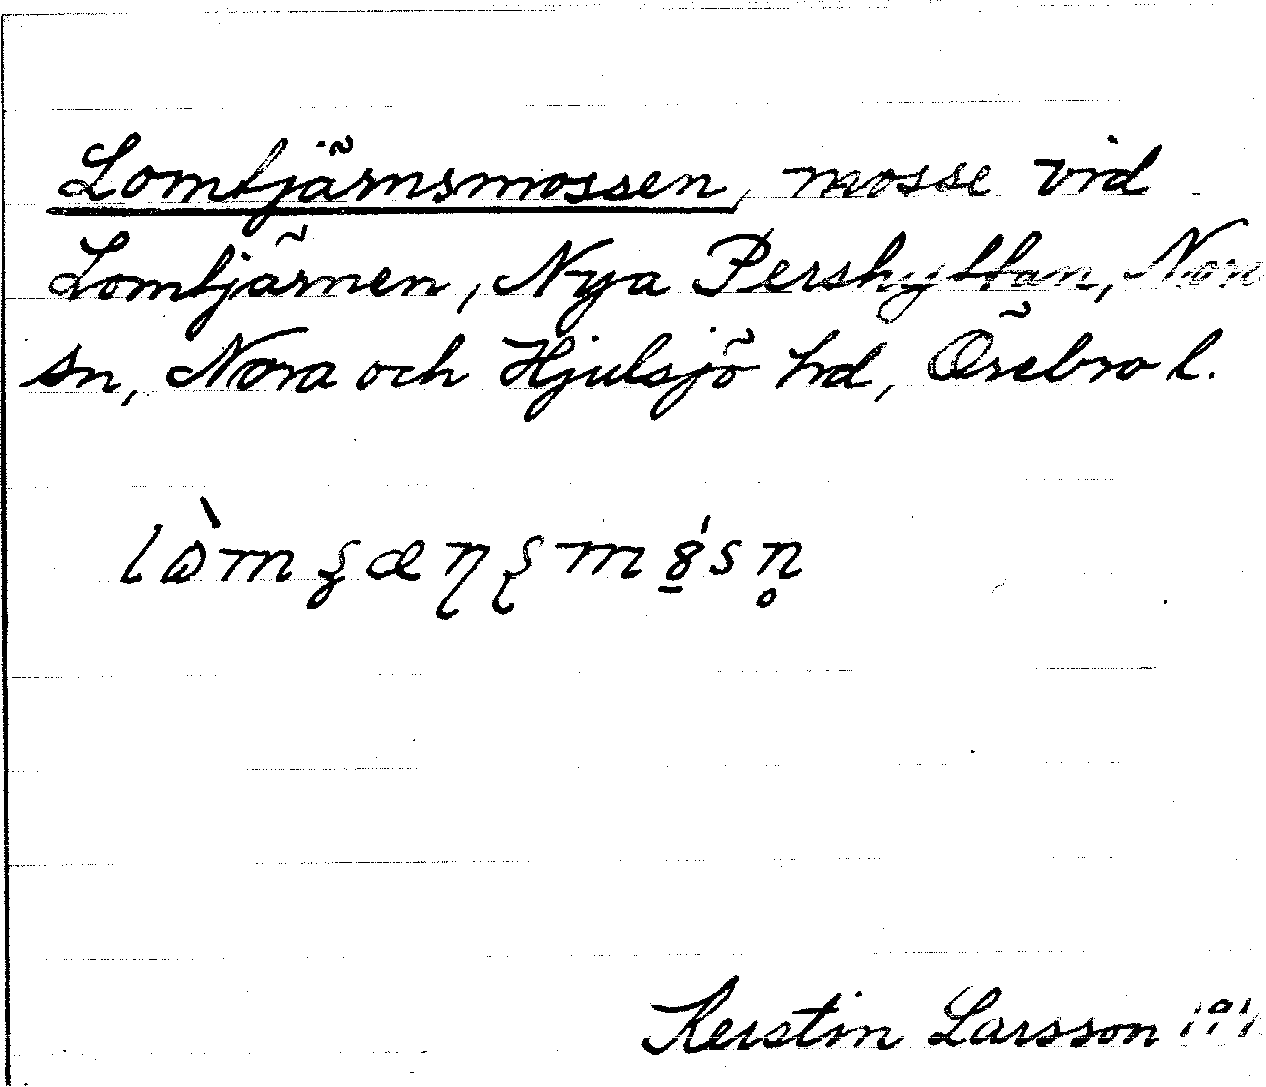 Lomtjärnsmossen, mosse vid
Lomtjärnen, Nya Pershyttan,
sn, Nora och Hjulsjö hd, Örebro l.
Kerstin Larsson